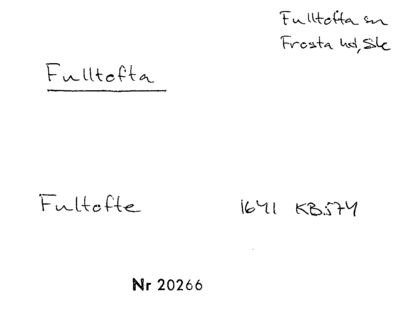 Fulltofta sn
Frosta hd, Sk
Fulltofta
Fultofte 1641 KB:574
Nr 20266